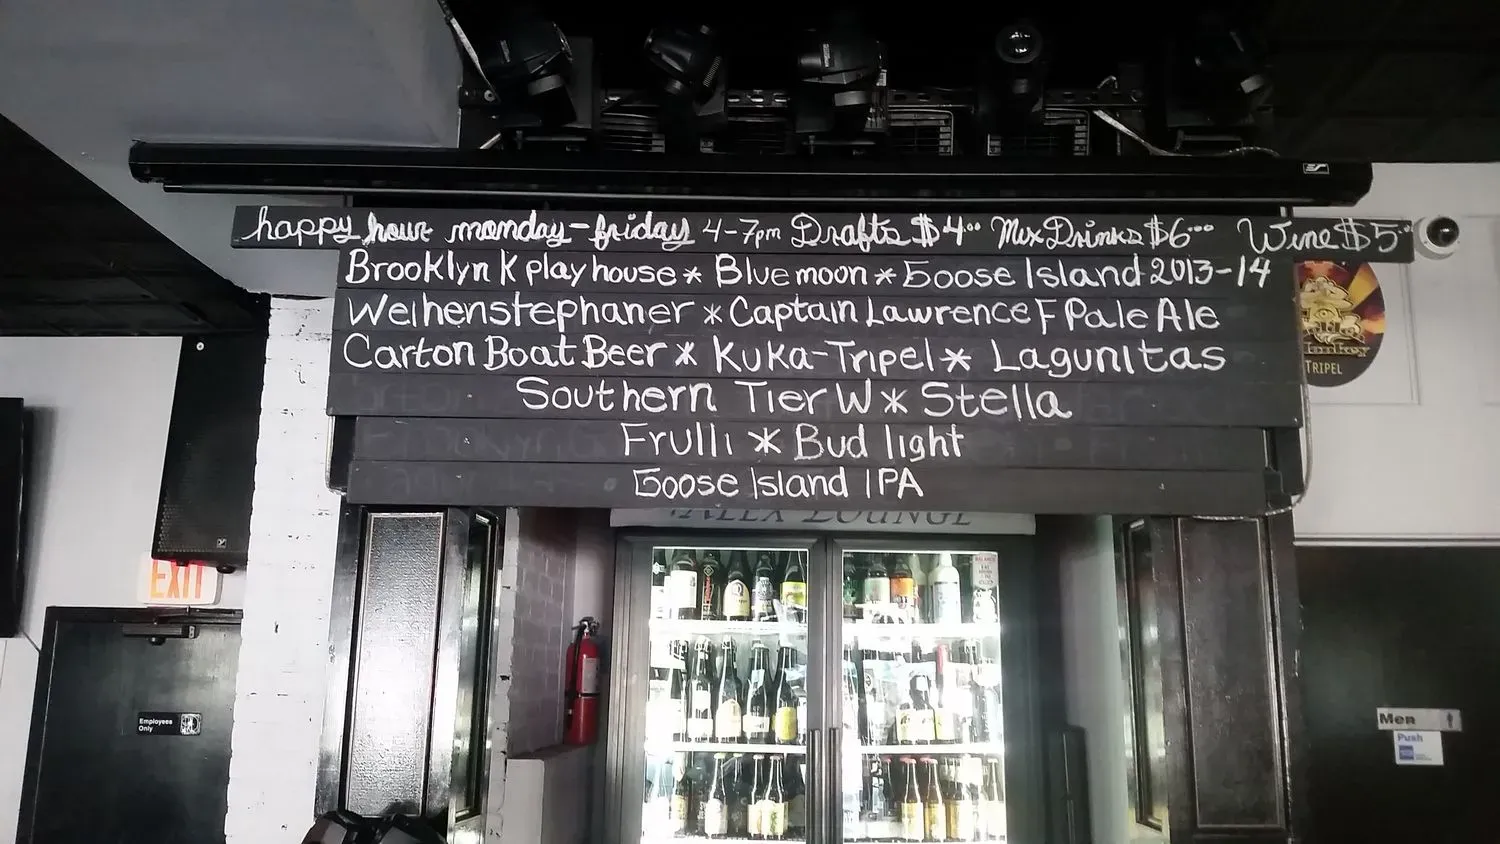 happy hour monday-friday 4-7pm Drafts $4.00 Mix Drinks $6.00 Wine $5.00
Brooklyn K playhouse * Bluemoon * Goose Island 2013-14
Weihenstephaner * Captain Lawrence F Pale Ale
Carton Boat Beer * Kuka-Tripel * Lagunitas
Southern Tier W * Stella
Frulli * Bud light
Goose Island IPA
LOUNGE
EXIT
Employees
Only
TRIPEL
Men
Push